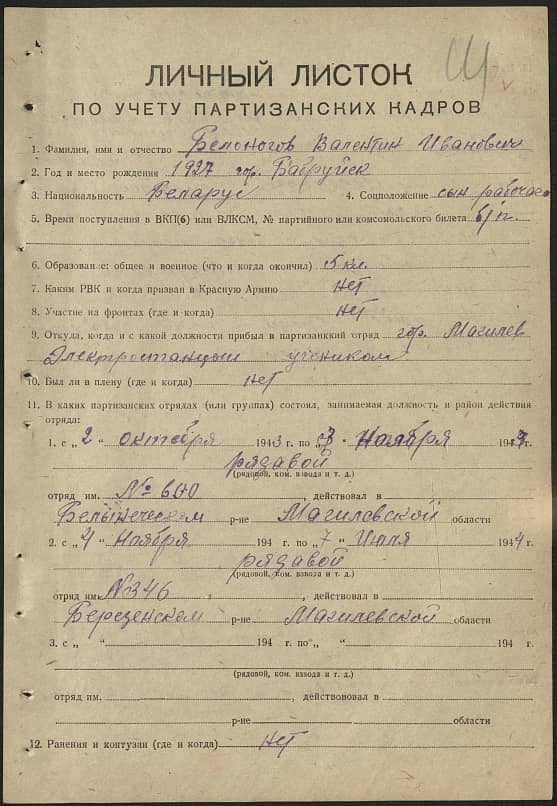 ЛИЧНЫЙ ЛИСТОК
ПО УЧЕТУ ПАРТИЗАНСКИХ КАДРОВ
1. Фамилия, имя и отчество Белоногов Валентин Иванович
2. Год и место рождения 1927 гор. Бабруйск
3. Национальность Беларус 4. Соцположение сын рабочаго
5. Время поступления в ВКП(б) или ВЛКСМ, № партийного или комсомольского билета б/п.
6. Образование: общее и военное (что и когда окончил) 5 кл.
7. Каким РВК и когда призван в Красную Армию нет
8. Участие на фронтах (где и когда) нет
9. Откуда, когда и с какой должности прибыл в партизанкий отряд гор. Магилев
Электростанции учеником
10. Был ли в плену (где и когда) нет
11. В каких партизанских отрядах (или группах) состоял, занимаемая должность и район действия
отряда:
1. с „2" октября 1943 г. по „ " Ноября 1943
рядавой
(рядовой, ком. взвода и т. д.)
отряд им. № 600 , действовал в
Белыническом р-не Магилевской области
2. с „4" Ноября 194 г. по „7" Июля 1944
рядавой
(рядовой, ком. взвода и т. д.)
отряд им. №346 , действовал в
Березенском р-не Магилевской области
3. с „ " 194 г. по „ " 194
(рядовой, ком. взвода и т. д.)
отряд им. , действововал в
р-не области
12. Ранения и контузии (где и когда) нет